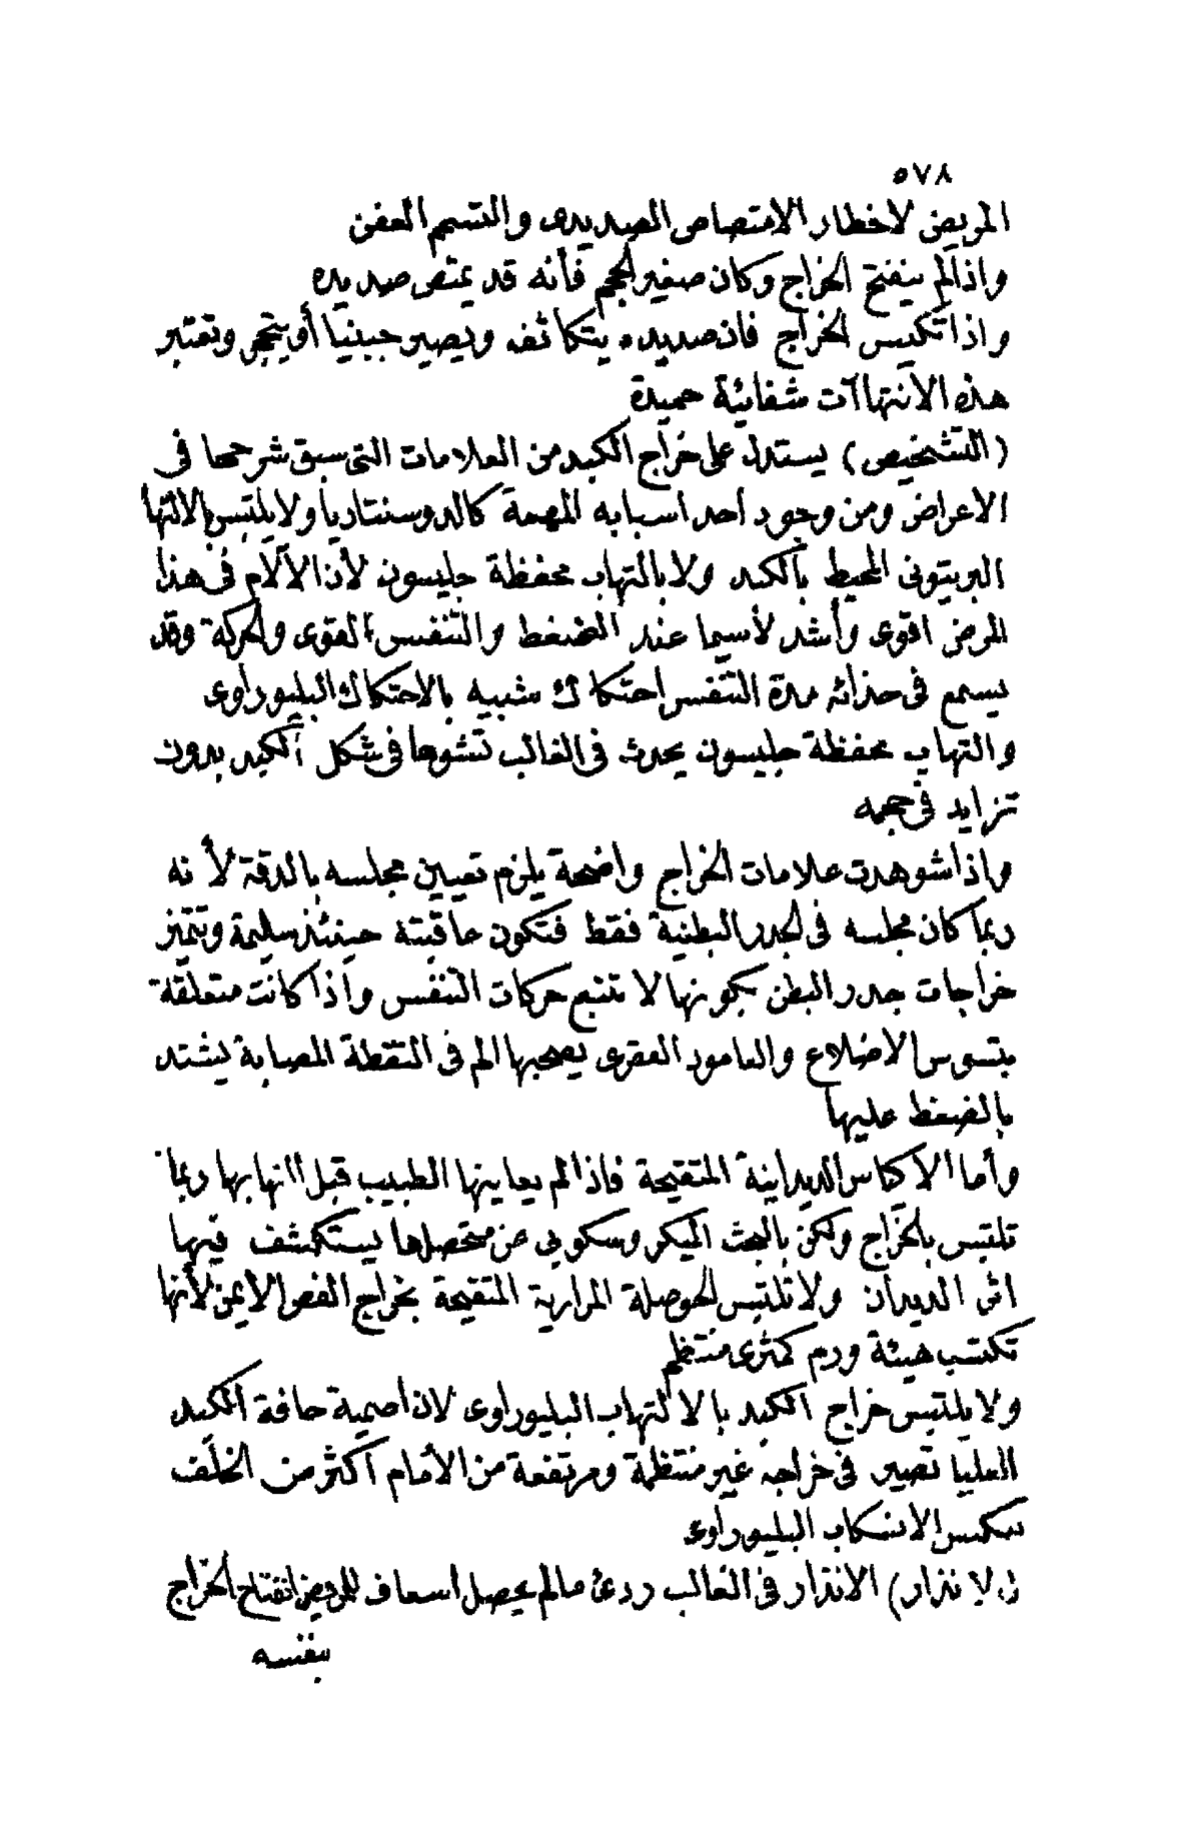 ٥٧٨
المريض لاخطار الامتصاص الصديدى والتسمم العفن
واذا لم ينفتح الخراج وكان صغير الحجم فأنه قد يمتص صديده
واذا تكيس الخراج فان صديده يتكاثف ويصير جبنيا أو يتحجر وتعتبر
هذه الانتهاآت شفائية حميدة
(التشخيص) يستدل على خراج الكبد من العلامات التى سبق شرحها فى
الاعراض ومن وجود احد اسبابه المهمة كالدوسنتاريا ولا يلتبس بالالتها
البريتونى المحيط بالكبد ولا بالتهاب محفظة جليسون لأن الآلام فى هذا
المرض اقوى وأشد لأسيما عند الضغط والتنفس القوى والحركة وقد
يسمع فى حذائه مدة التنفس احتكاك شبيه بالاحتكاك البليوراوى
والتهاب محفظة جليسون يحدث فى الغالب تشوها فى شكل الكبد بدون
تزايد فى حجمه
واذا شوهدت علامات الخراج واضحة يلزم تعيين مجلسه بالدقة لأنه
ربما كان مجلسه فى الجدر البطنية فقط فتكون عاقبته حينئذ سليمة وتتميز
خراجات جدر البطن بكونها لا تتبع حركات التنفس واذا كانت متعلقة
بتسوس الاضلاع والعامود الفقرى يصحبها الم فى النقطة المصابة يشتد
بالضغط عليها
وأما الاكياس الديدانية المتقيحة فاذا لم يعاينها الطبيب قبل التهابها ربما
تلتبس بالخراج ولكن بالبحث الميكروسكوبى عن متحصلها يستكشف فيها
اثر الديدان ولا تلتبس الحوصلة المرارية المتقيحة بخراج الفص الأيمن لأنها
تكتسب هيئة ورم كمثرى منتظم
ولا يلتبس خراج الكبد بالالتهاب البليوراوى لان اصمية حافة الكبد
العليا تصير فى خراجه غير منتظمة ومرتفعة من الأمام أكثر من الخلف
بعكس الانسكاب البليوراوى
(الانذار) الانذار فى الغالب ردئ مالم يحصل اسعاف للمريض انفتاح الخراج
بنفسه